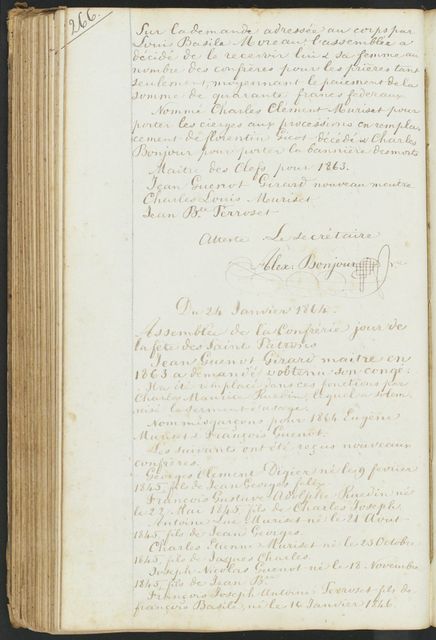 266.
Sur la demande adressée au corps par
Louis Basile Moreau, l'assemblée a
décidé de le recevoir lui & sa femme au
nombre des confrères pour les prières tant
seulement, moyennant le paiement de la
somme de quarante francs fédéraux
Nommé Charles Clément Muriset pour
porter les cierges aux processions en rempla-
cement de Florentin Gicot décédé & Charles
Bonjour pour porter la bannière des morts
Maître des Clefs pour 1863.
Jean Guenot Girard nouveau maitre
Charles Louis Muriset
Jean Bte Perroset
Atteste Le secrétaire
Alex. Bonjour
Du 24 Janvier 1864.
Assemblée de la Confrérie jour de
la fête des Saint Patrons
Jean Guenot Girard maitre en
1863 a demandé & obtenu son congé.
Il a été remplacé dans ces fonctions par
Charles Maurice Ruedin lequel a solem
nisé le serment d'usage.
Nommés garçons pour 1864 Eugène
Muriset & François Guenot.
Les suivants ont été reçus nouveaux
confrères.
Georges Clement Digier né le 9 fevrier
1845, fils de Jean Georges
François Gustave Adolphe Ruedin né
le 22 Mai 1845 fils de Charles Joseph
Antoine Luc Muriset né le 21 Août
1845 fils de Jean Georges
Charles Etienne Muriset né le 25 Octobre
1845, fils de Jaques Charles.
Joseph Nicolas Guenot né le 18 Novembre
1845, fils de Jean Bte
François Joseph Antoine Perroset fils de
françois Basile, né le 16 Janvier 1846